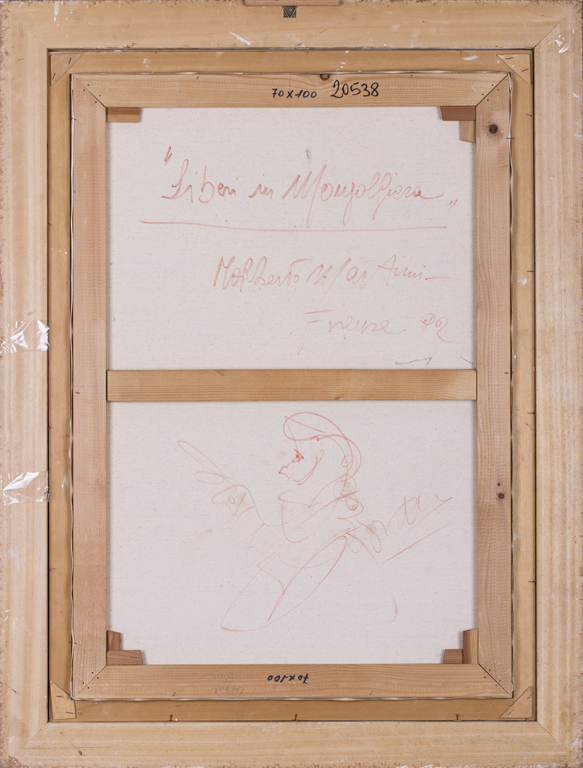 70x100 20538
"Liberi in Mongolfiera"
Norberto Martini
Firenze 92
70x100